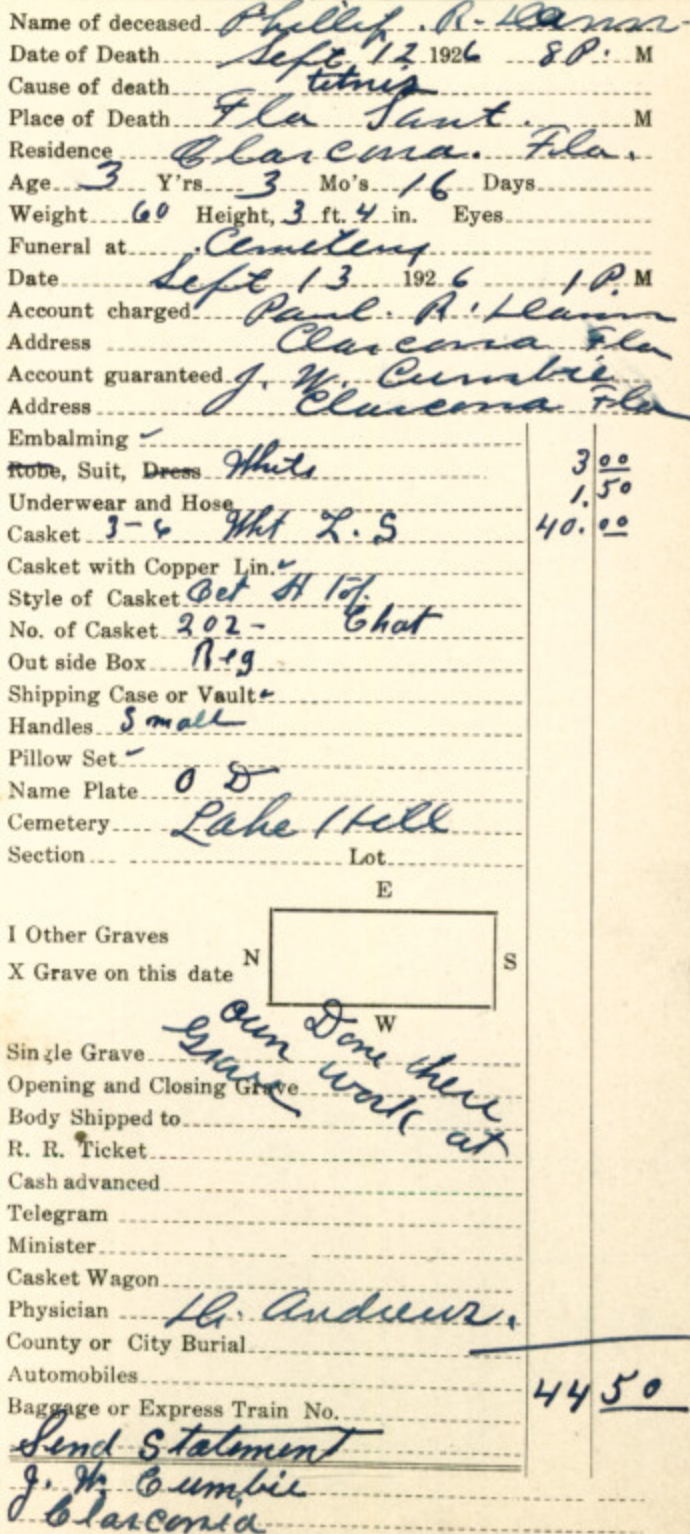 Name of deceased Phillip. R. Dann
Date of Death Sept 12 1926 8 P. M
Cause of death tetnis
Place of Death Fla Sant. M
Residence Clarcona. Fla.
Age 3 Y'rs 3 Mo's 16 Days
Weight 60 Height, 3 ft. 4 in. Eyes
Funeral at Cemetery
Date Sept 13 1926 1 P. M
Account charged Paul. R. Dann
Address Clarcona Fla
Account guaranteed J. W. Cumbie
Address Clarcona Fla
Embalming
Robe, Suit, Dress White 3 00
Underwear and Hose 1.50
Casket 3-6 Wht L. S 40.00
Casket with Copper Lin.
Style of Casket Oct
No. of Casket 202-
Out side Box Reg
Shipping Case or Vault
Handles Small
Pillow Set
Name Plate O D
Cemetery Lake Hill
Section Lot
E
I Other Graves
N S
X Grave on this date
W
Done there
own work at
Grave
Single Grave
Opening and Closing Grave
Body Shipped to
R. R. Ticket
Cash advanced
Telegram
Minister
Casket Wagon
Physician Dr. Andrews.
County or City Burial
Automobiles 44 50
Baggage or Express Train No.
Send Statement
J. W. Cumbie
Clarconia